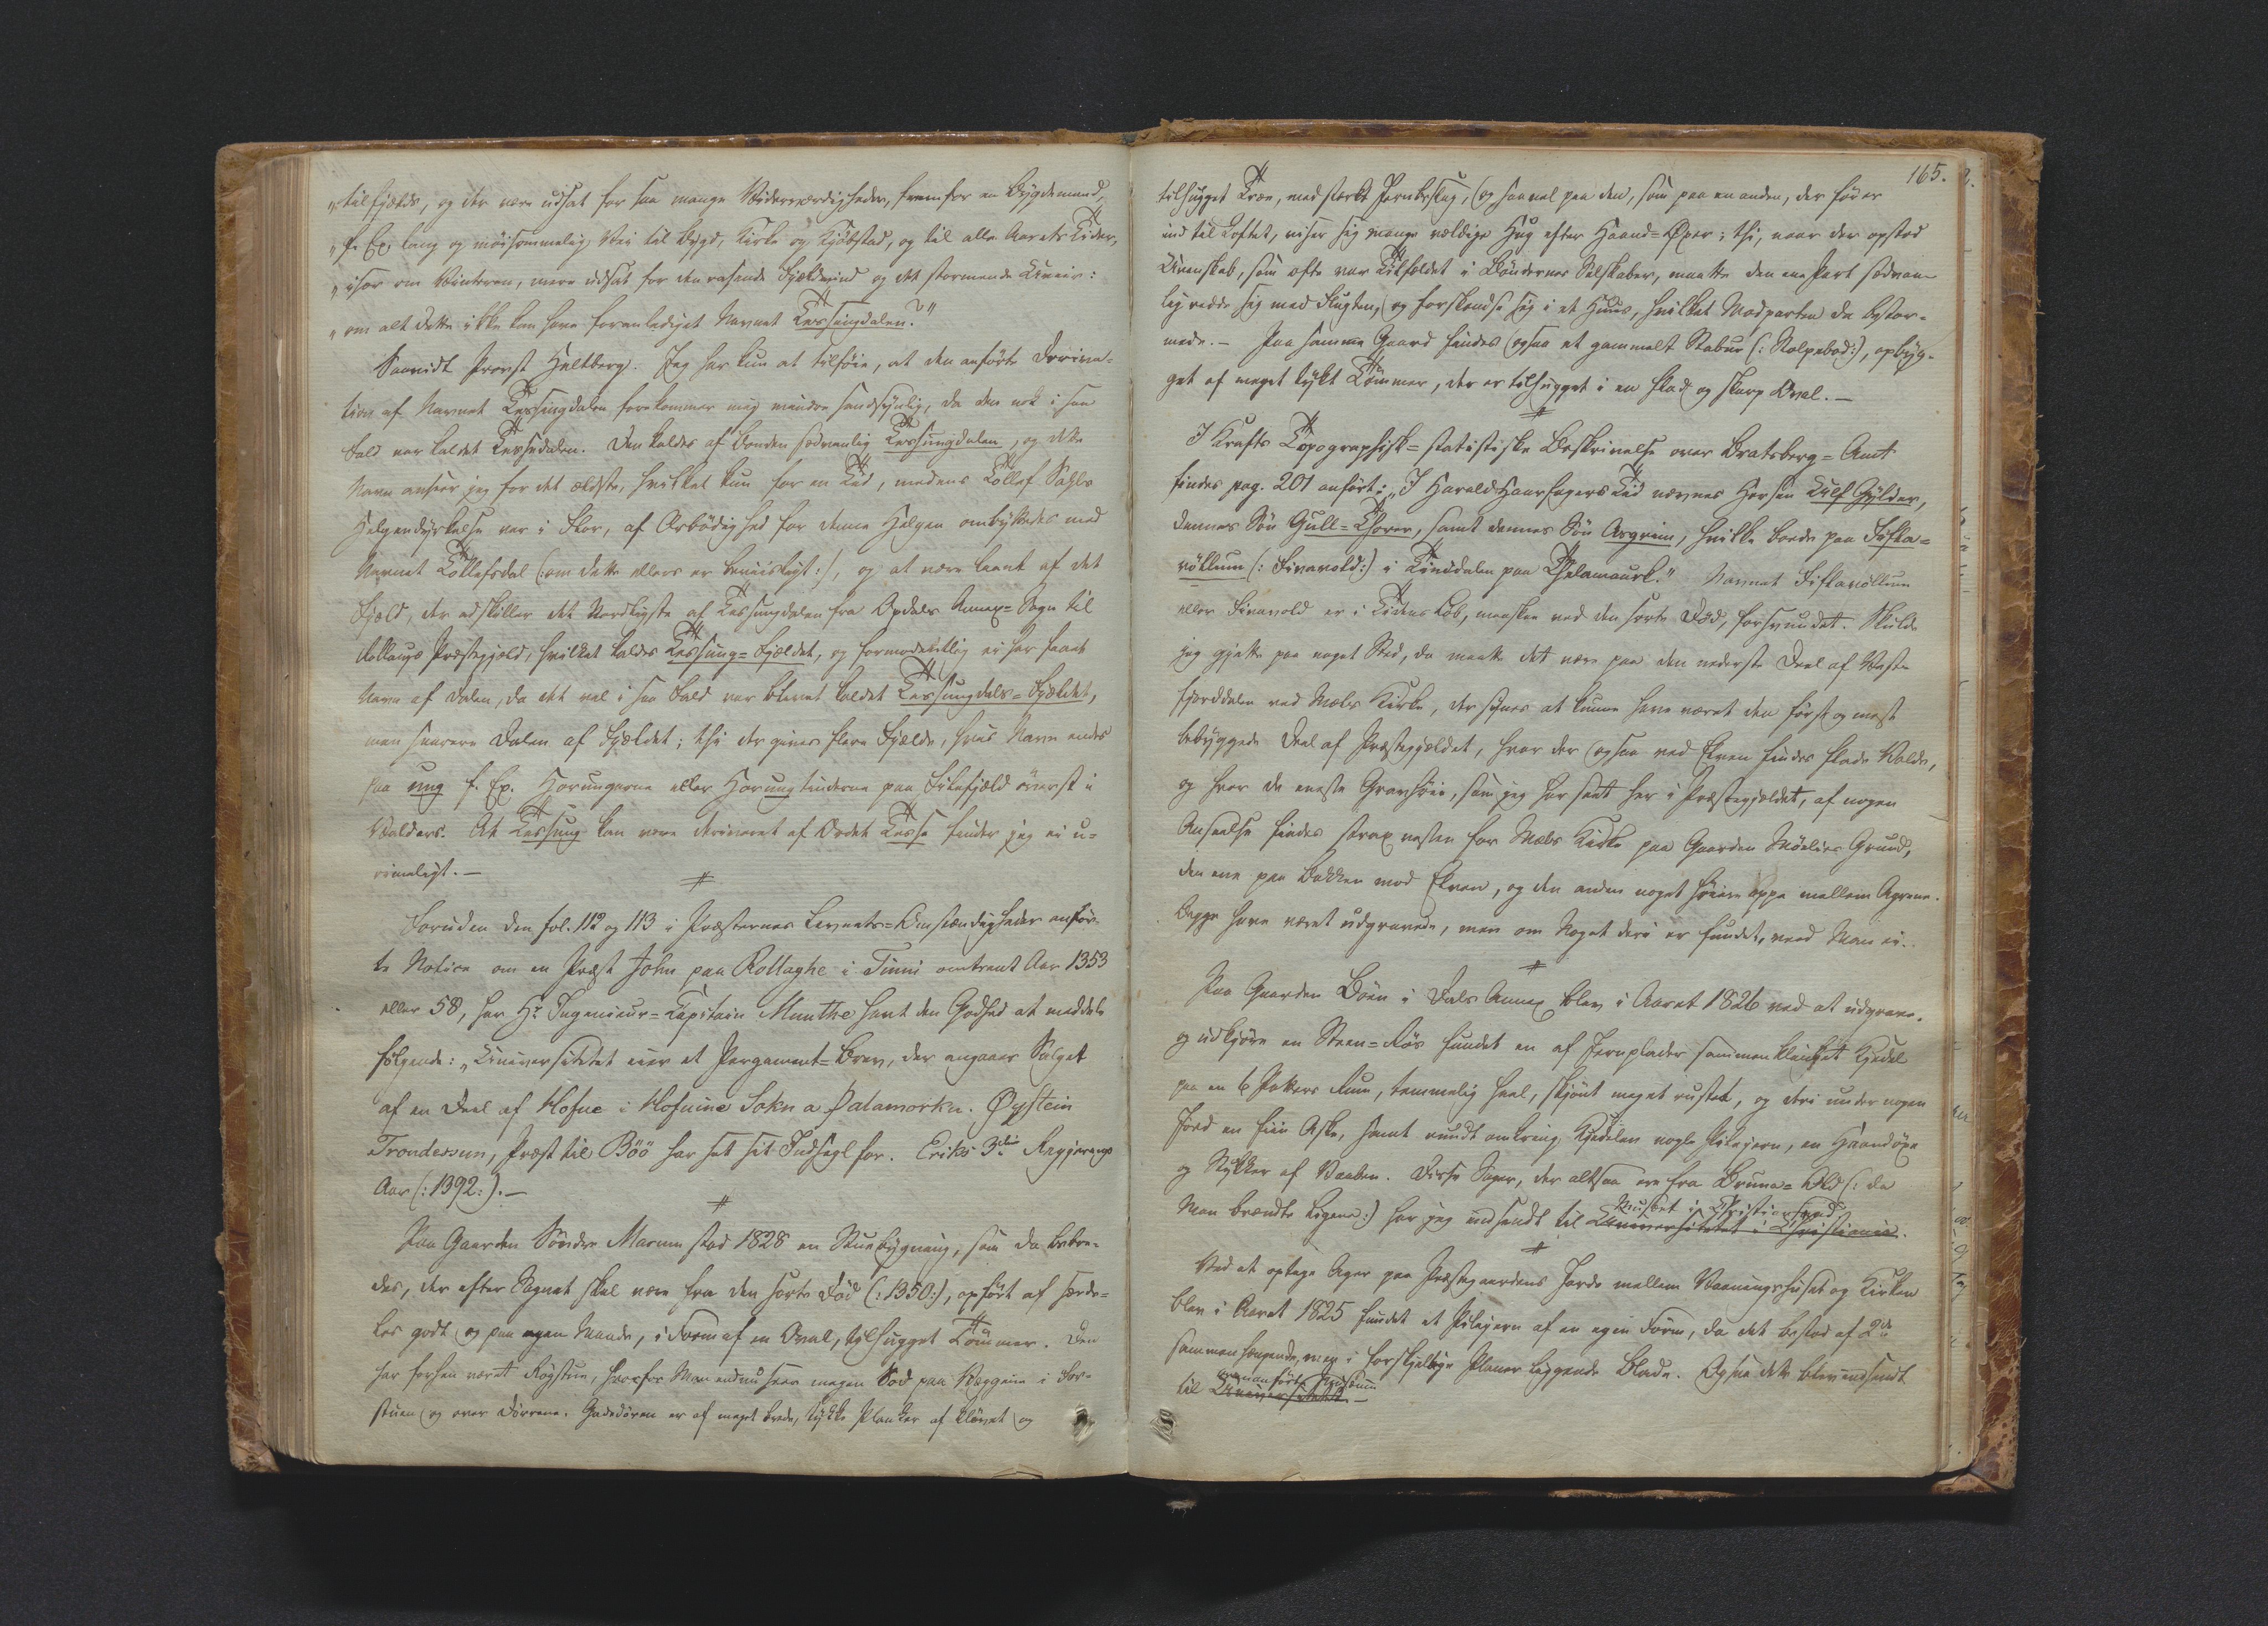 „tilfjælds, og der være udsat for saa mange Widerværdigheder, fremfor en Bygdemand,
„f. Ex: lang og møisommelig Vei til Bygd, Kirke og Kjøbstad, og til alle Aarets Tider,
„især om Vinteren, mere udsat for den rasende Fjeldvind og det stormende Uveir:
„om alt dette ikke kan have foranlediget Navnet Tessingdalen?"
Saavidt Provst Heltberg. Jeg har kun at tilføie, at den anførte Deriva-
tion af Navnet Tessingdalen forekommer mig mindre sandsynlig, da den nok i saa
Fald var kaldet Tessedalen. Den kaldes af Bonden sædvanlig Tessungdalen, og dette
Navn anseer jeg for det ældste, hvilket kun for en Tid, medens Tollef Sahls
Helgendyrkelse var i Flor, af Ærbødighed for denne Helgen ombyttedes med
Navnet Tollefsdal (:om dette ellers er beviisligt:), og at være laant af det
Fjeld, der adskiller det Nordligste af Tessungdalen fra Opdals Annex-Sogn til
Rollaugs Præstegjeld, hvilket kaldes Tessung-Fjeldet, og formodentlig ei har faaet
Navn af Dalen, da det vel i saa Fald var blevet kaldet Tessungdals-Fjeldet,
men snarere Dalen af Fjeldet; thi der gives flere Fjelde, hvis Navn endes
paa ung f. Ex. Horungerne eller Horungtinderne paa Filefjeld øverst i
Valders. At Tessung kan være deriveret af Ordet Tesse finder jeg ei u-
rimeligt.—
#
Foruden den fol. 112 og 113 i Præsternes Levnets-Omstændigheder anfør-
te Notice om en Præst John paa Rollaghe i Tinni omtrent Aar 1353
eller 58, har Hr Ingenieur-Capitain Munthe havt den Godhed at meddele
følgende: „Universitetet eier et Pergament-Brev, der angaaer Salget
af en Deel af Hofue i Hofuine Sokn a Þalamorku. Øystein
Trondessun, Præst til Böö har sat sit Indsegl for. Eriks 3die Regjerings
Aar (:1392:).—
#
Paa Gaarden Søndre Marum stod 1828 en Stuebygning, som da beboe-
des, der efter Sagnet skal være fra den sorte Død (:1350:), opført af særde-
les godt og paa egen Maade, i Form af en Oval, tilhugget Tømmer. Den
har forhen været Røgstue, hvorfor Man endnu seer megen Sod paa Væggene i For-
stuen og over Dørrene. Gadedøren er af meget brede, tykke Planker af kløvet og
165.
tilhugget Træe, med stærkt Jernbeslag, og saavel paa den, som paa en anden, der fører
ind til Loftet, viser sig mange vældige Hug efter Haand-Øxer; thi, naar der opstod
Uvenskab, som ofte var Tilfældet i Bøndernes Selskaber, maatte den ene Part sædvan-
lig redde sig med Flugten, og forskandse sig i et Huus, hvilket Modparten da bestor-
mede.— Paa samme Gaard findes ogsaa et gammelt Stabur (:Stolpebod:), opbyg-
get af meget tykt Tømmer, der er tilhugget i en flad og skarp Oval.—
#
I Krafts Topographisk-statistiske Beskrivelse over Bratsberg-Amt
findes pag. 201 anført: „I Harald Haarfagers Tid nævnes Hersen Ulf Gyldir,
dennes Søn Gull-Thorer, samt dennes Søn Asgrim, hvilke boede paa Fifla-
vøllum (:Fivavold:) i Tinddalen paa Thelamaurk." Navnet Fiflavøllum
eller Fivavold er i Tidens Løb, maaskee ved den sorte Død, forsvundet. Skulde
jeg gjette paa noget Sted, da maatte det være paa den nederste Deel af Vest-
fjorddalen ved Mæls Kirke, der synes at kunne have været den først og mest
bebyggede Deel af Præstegjeldet, hvor der ogsaa ved Elven findes flade Volde,
og hvor de eneste Gravhøie, som jeg har seet her i Præstegjeldet, af nogen
Anseelse findes strax vesten for Mæls Kirke paa Gaarden Møelies Grund,
den ene paa Bakken mod Elven, og den anden noget høiere oppe mellem Agrene.
Begge have været udgravede, men om Noget deri er fundet, veed Man ei.
#
Paa Gaarden Bøen i Dals Annex blev i Aaret 1826 ved at udgrave
og udkjøre en Steen-Røs fundet en af Jernplader sammenklinket Kjedel
paa en 6 Potters Rum, temmelig heel, skjønt meget rusten, og deri under nogen
Jord en fiin Aske, samt rundt omkring Kjedelen nogle Pilejern, en Haandøxe
og Stykker af Vaaben. Disse Sager, der altsaa ere fra Bruna-Old (:da
Man brændte Ligene:) har jeg indsendt til Universitetet i Christiania.
Museet i Christiansand
#
Ved at optage Ager paa Præstegaardens Jorde mellem Vaaningshuset og Kirken
blev i Aaret 1825 fundet et Pilejern af en egen Form, da det bestod af 2de
sammenhængende, men i forskjellige Planer liggende Blade. Ogsaa dette blev indsendt
til Universitetet.—
ovenanførte Museum